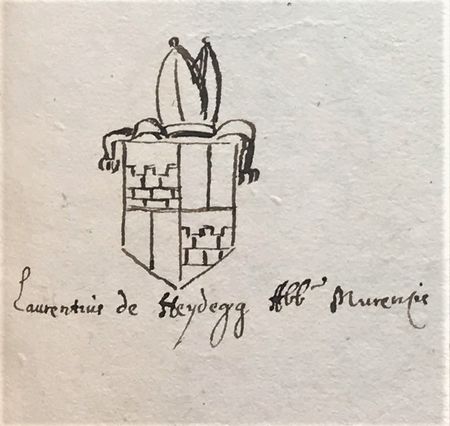 Laurentius de Heydegg Abb⁠s Murensis